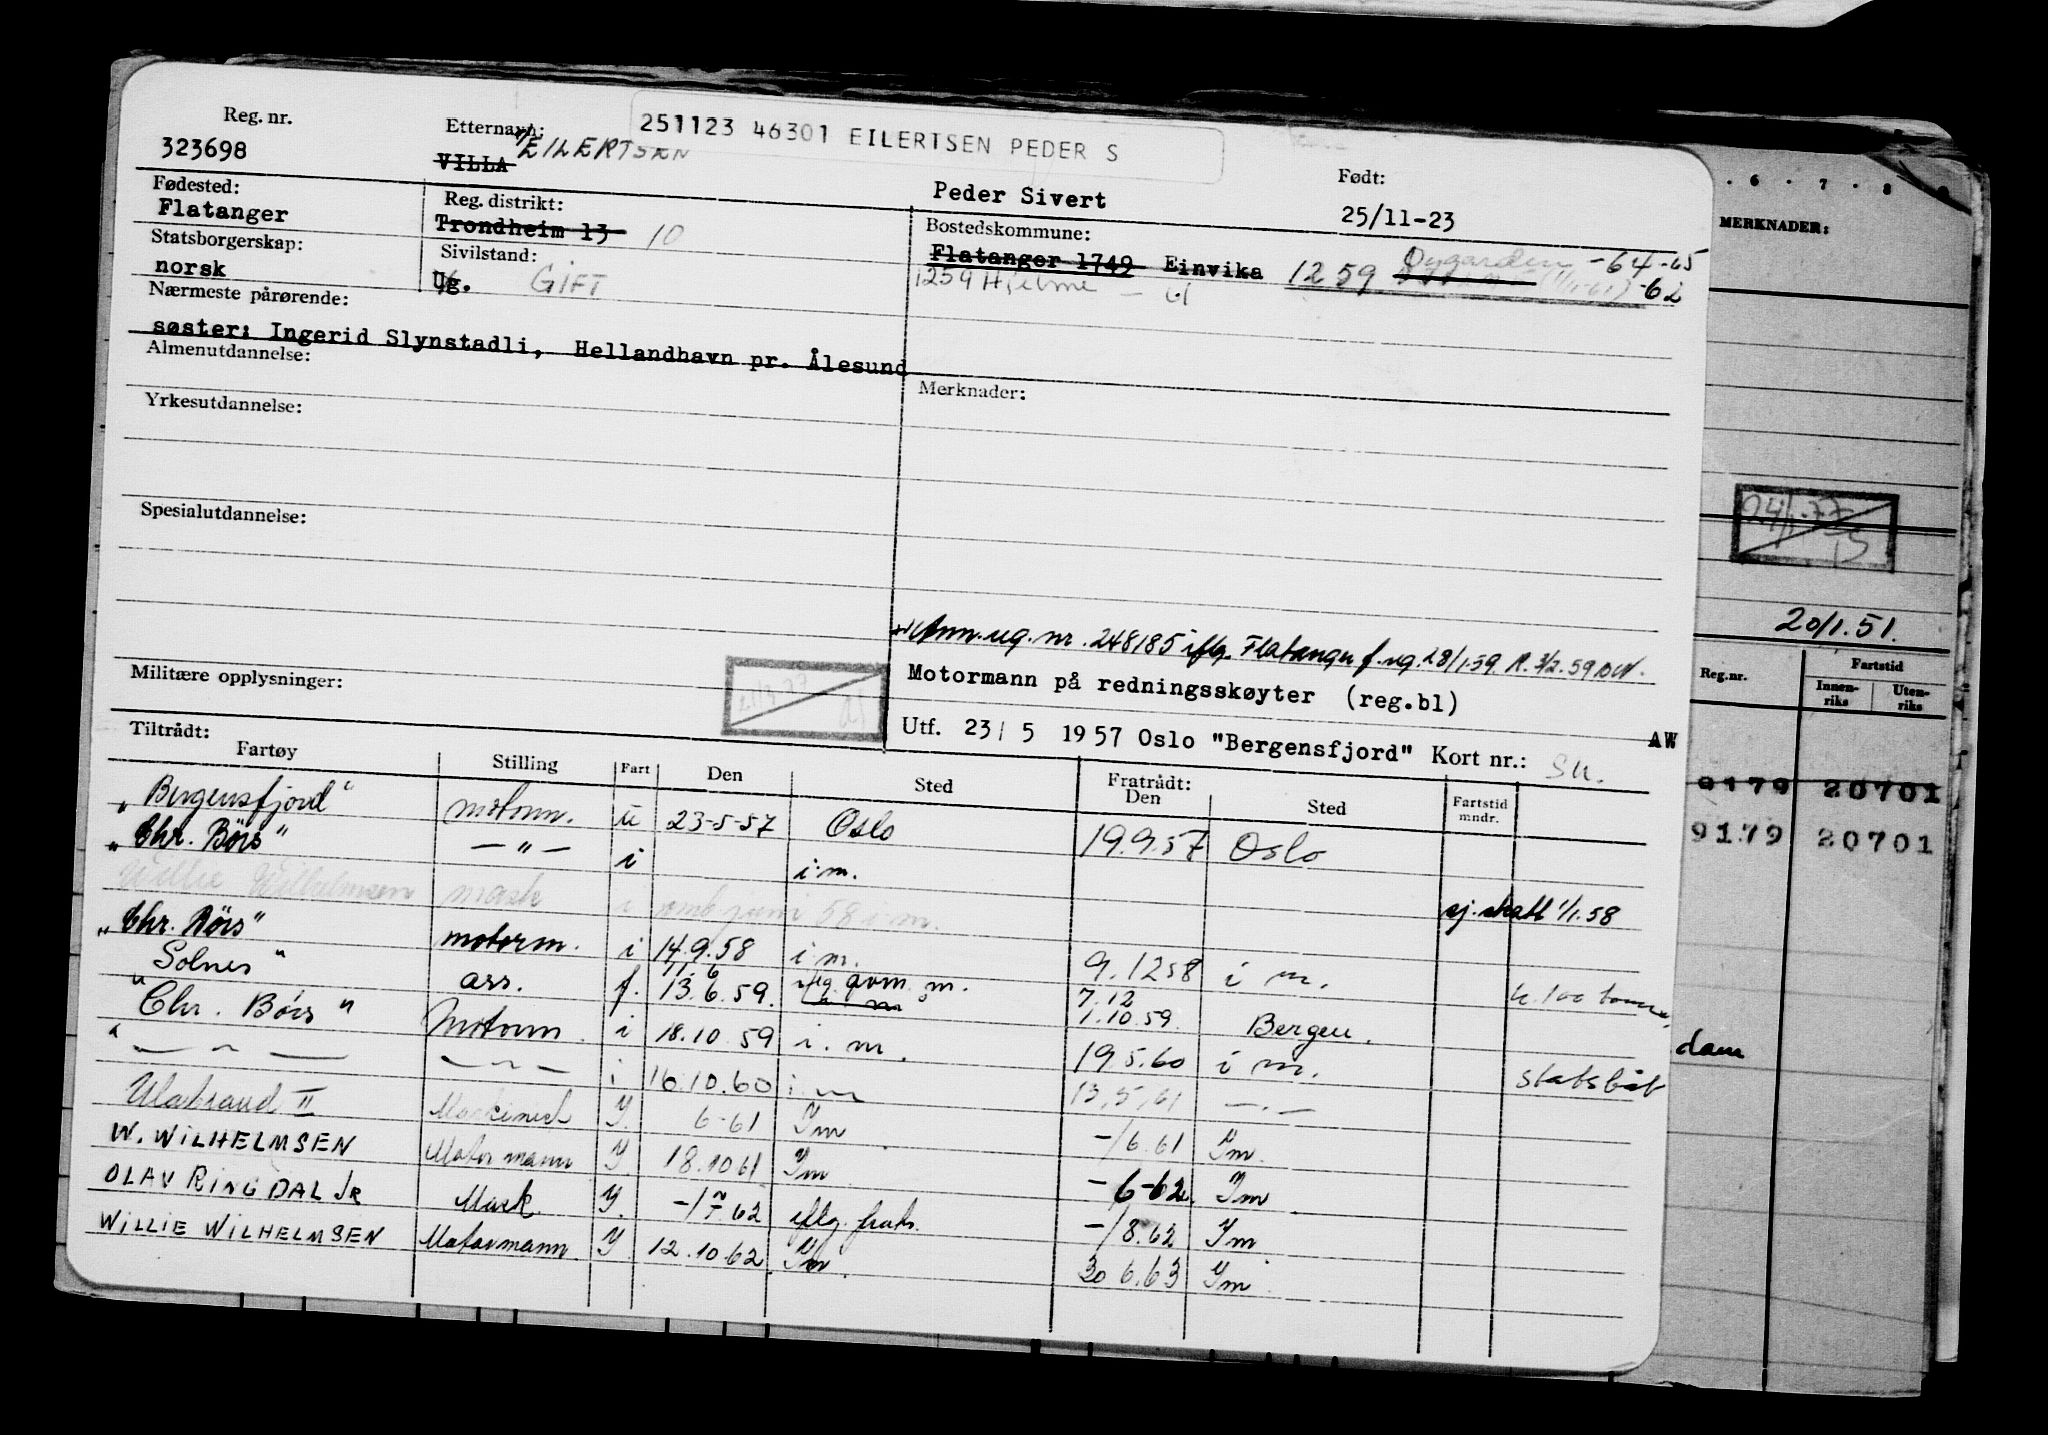 Reg. nr. Etternavn: 251123 46301 EILERTSEN PEDER S
323698 VILLA EILERTSEN Peder Sivert Født: 25/11-23
Fødested: Reg. distrikt: Bostedskommune:
Flatanger Trondheim 13 10 Flatanger 1749 Einvika 1259 Øygarden -64-65
Statsborgerskap: Sivilstand: 1259 Hjelme - 61 -62
norsk Ug. GIFT
Nærmeste pårørende:
søster: Ingerid Slynstadli, Hellandhavn pr. Ålesund
Almenutdannelse: Merknader:
Yrkesutdannelse:
Spesialutdannelse:
Ann. reg. nr. 248185 iflg. Flatanger f. reg. 28/1.59 R. 3/2.59
Militære opplysninger: Motormann på redningsskøyter (reg.bl)
Utf. 23/ 5 1957 Oslo "Bergensfjord" Kort nr.: AW
Tiltrådt: Fratrådt:
Fartøy Stilling Fart Den Sted Den Sted Fartstid mndr.
"Bergensfjord" motorm. u 23-5-57 Oslo 19.9.57 Oslo
"Chr. Börs" — " — i i.m.
Willie Wilhelmsen mask i omb juni 58 i.m. sj. skatt 1/1.58
"Chr. Börs" motorm. i 14.9.58 i.m. 9.12 58 i m.
"Solnes" ass. f. 11.6 13.6.59. iflg. m. 7.12 1.10.59. Bergen.
"Chr. Börs" Motorm. i 18.10.59 i.m. 19.5.60 i m. statsbåt
" — " — — " — i 16.10.60 i m 13.5.61 — " —
Ulabrand II Maskinist Y. 6-61 Ym -/6.61 Ym.
W. WILHELMSEN Motormann Y 18.10 61 Ym -6-62. Ym
OLAV RINGDAL JR Mask. Y. -/7.62 eftg. Ym
-/8.62 Ym
WILLIE WILHELMSEN Motormann Y. 12.10.62 Ym. 30 6.63 Ym
6 · 7 · 8
MERKNADER:
20/1.51.
Reg.nr. Fartstid
Innen-riks Uten-riks
9179 20701
9179 20701
dam